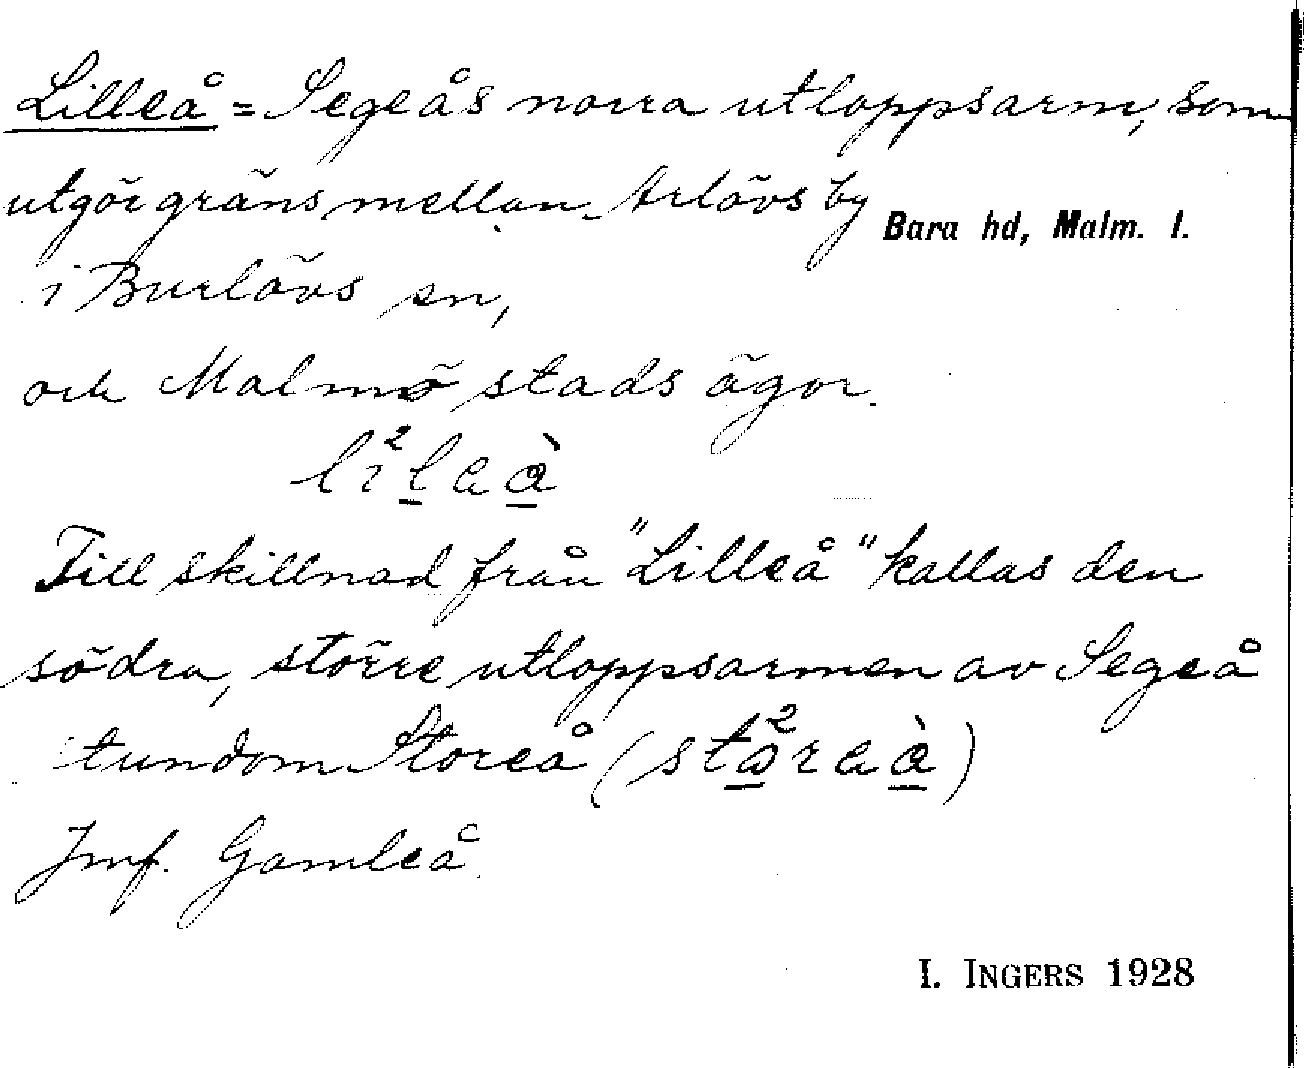 Lilleå = Segeås norra utloppsarm, som
utgör gräns mellan Arlövs by
Bara hd, Malm. l.
i Burlövs sn,
och Malmö stads ägor.
Till skillnad från "Lilleå" kallas den
södra, större utloppsarmen av Segeå
stundom Storeå
Jmf. Gamleå.
I. INGERS 1928